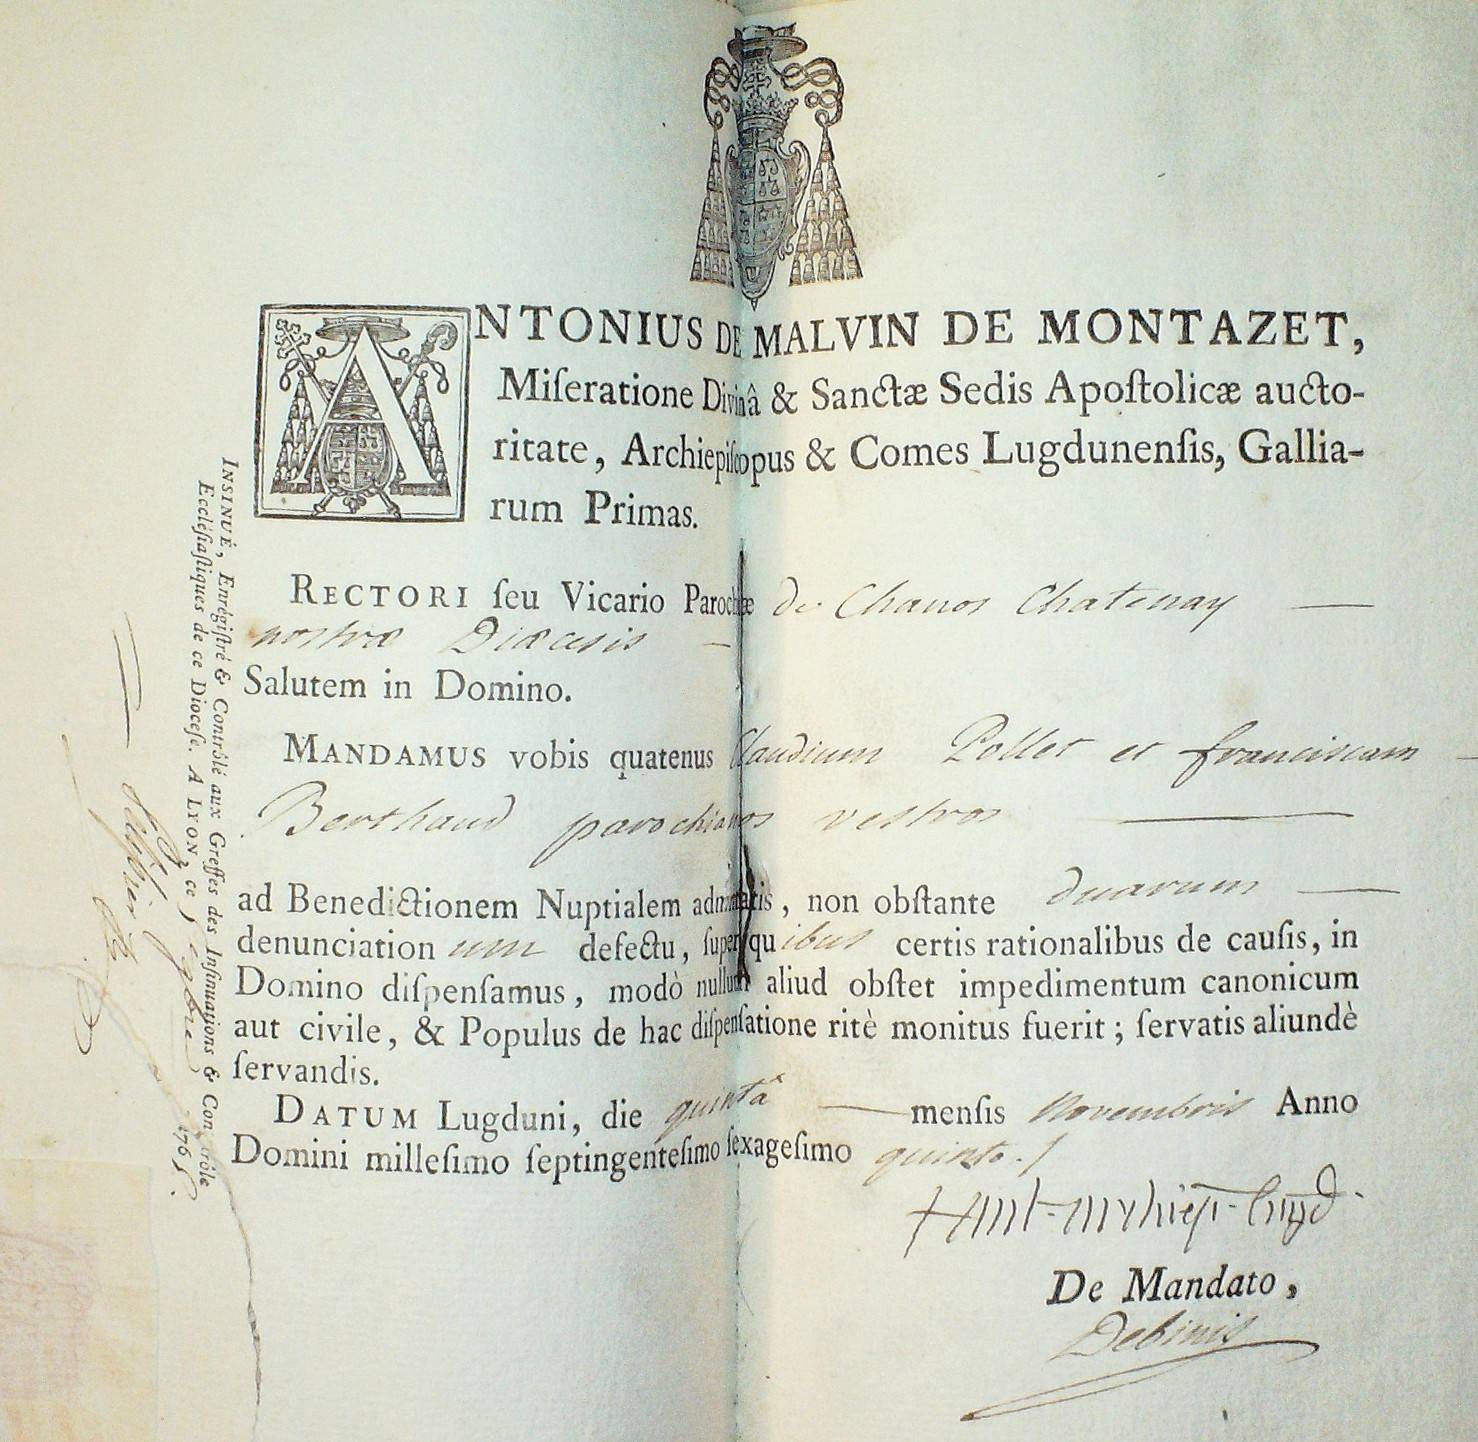 ANTONIUS DE MALVIN DE MONTAZET,
Miſeratione Divinâ & Sanctæ Sedis Apoſtolicæ aucto-
ritate, Archiepiſcopus & Comes Lugdunenſis, Gallia-
rum Primas.
RECTORI ſeu Vicario Parochiæ de Chanos Chatenay —
nostræ Diæcesis —
Salutem in Domino.
MANDAMUS vobis quatenus Claudium Pollet et franciscam —
Berthaud parochianos vestros —
ad Benedictionem Nuptialem admittatis, non obſtante duarum —
denunciationum defectu, ſuper quibus certis rationalibus de cauſis, in
Domino diſpenſamus, modò nullum aliud obſtet impedimentum canonicum
aut civile, & Populus de hac diſpenſatione ritè monitus fuerit; ſervatis aliundè
ſervandis.
DATUM Lugduni, die quintâ — menſis Novembris Anno
Domini milleſimo ſeptingenteſimo ſexageſimo quinto.
De Mandato,
Debinis
INSINUÉ, Enrégiſtré & Contrôlé aux Greffes des Inſinuations & Controle
Eccléſiaſtiques de ce Dioceſe. A LYON, ce 5 9bre 1765.